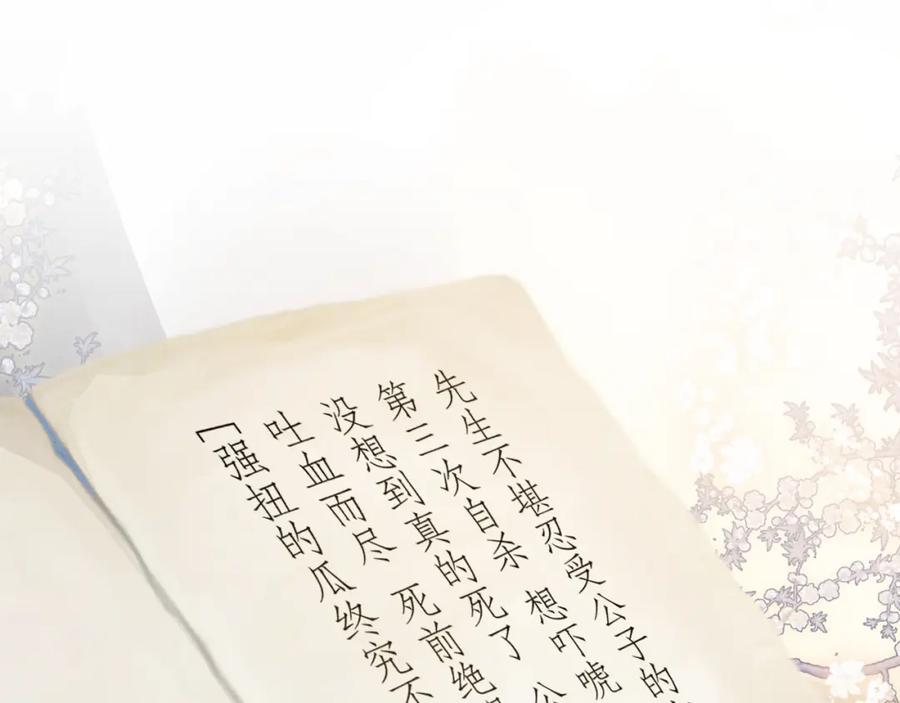 先生不堪忍受公子的
第三次自杀 想吓唬
没想到真的死了 公
吐血而尽 死前绝
「强扭的瓜终究不